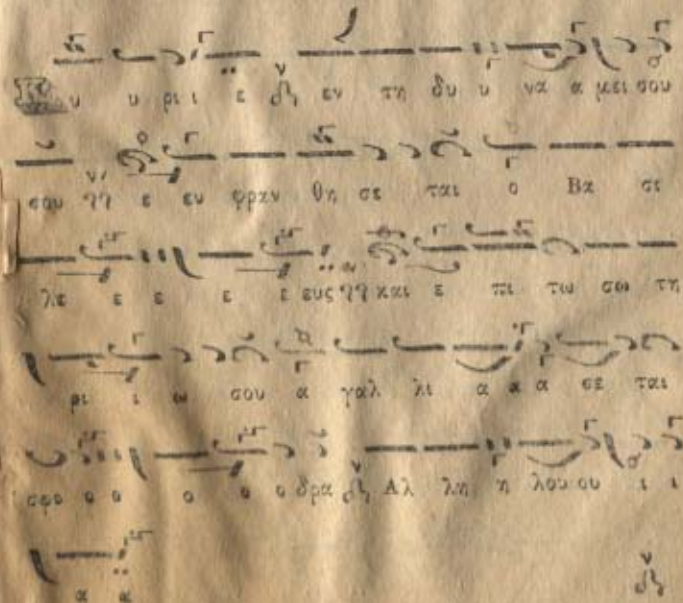 Κυ υ ρι ι ε εν τη δυ υ να α μει σου
σου ε ευ φραν θη σε ται ο Βα σι
λε ε ε ε ε ευς και ε πι τω σω τη
ρι ι ω σου α γαλ λι α α α σε ται
σφο ο ο ο ο ο δρα Αλ λη η λου ου ι ι
α α